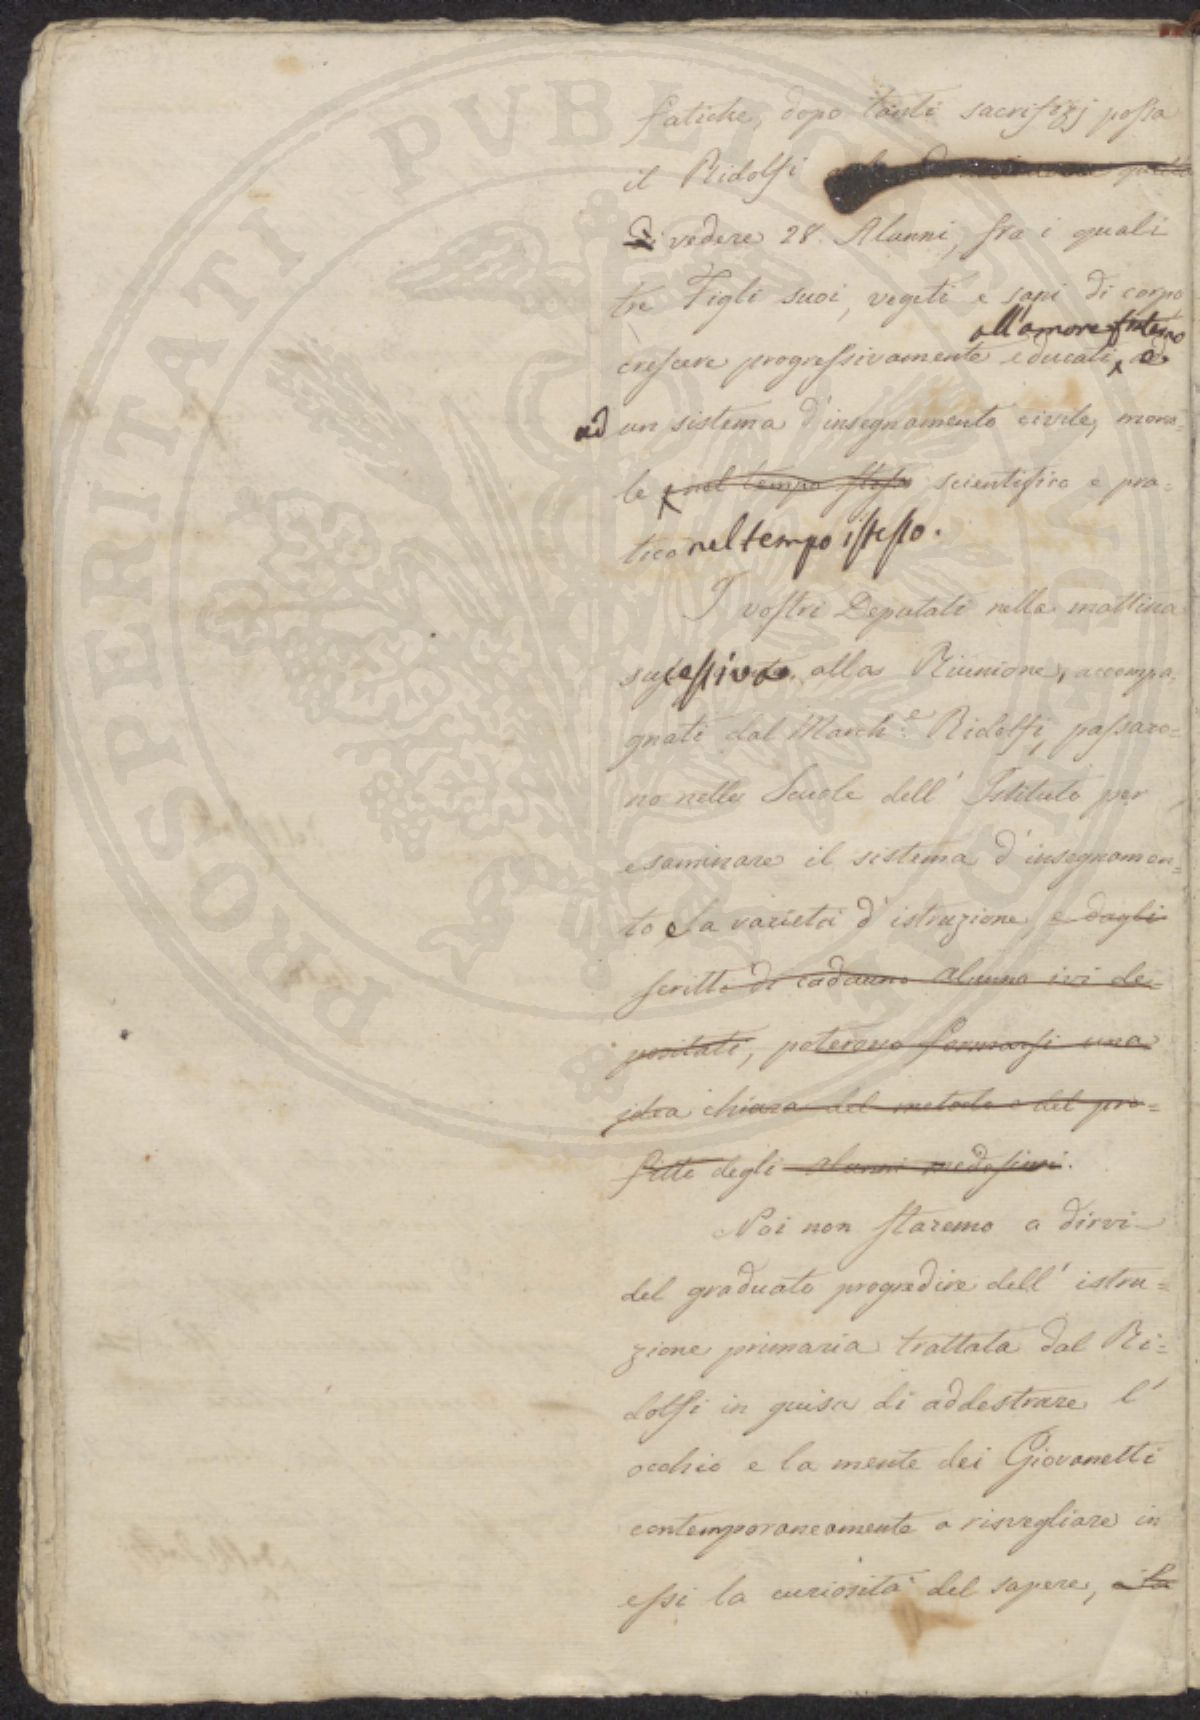 fatiche, dopo tanti sacrifizj possa
il Ridolfi
Di vedere 28. Alunni, fra i quali
tre Figli suoi, vegeti e sani di corpo
all'amore fraterno
crescere progressivamente educati, e
ad un sistema d'insegnamento civile, mora=
le, nel tempo stesso scientifico e pra=
tico nel tempo istesso.
I vostri Deputati nella mattina
successiva alla Riunione, accompa=
gnati dal March.e Ridolfi, passaro=
no nelle Scuole dell' Istituto per
esaminare il sistema d'insegnamen=
to e la varietà d'istruzione, e dagli
scritti di cadauno Alunno ivi de=
positati, poterono formarsi una
idea chiara del metodo e del pro=
fitto degli alunni medesimi.
Noi non staremo a dirvi
del graduato progredire dell' istru=
zione primaria trattata dal Ri=
dolfi in guisa di addestrare l'
occhio e la mente dei Giovanetti
contemporaneamente a risvegliare in
essi la curiosità del sapere,
PROSPERITATI PUBLICAE